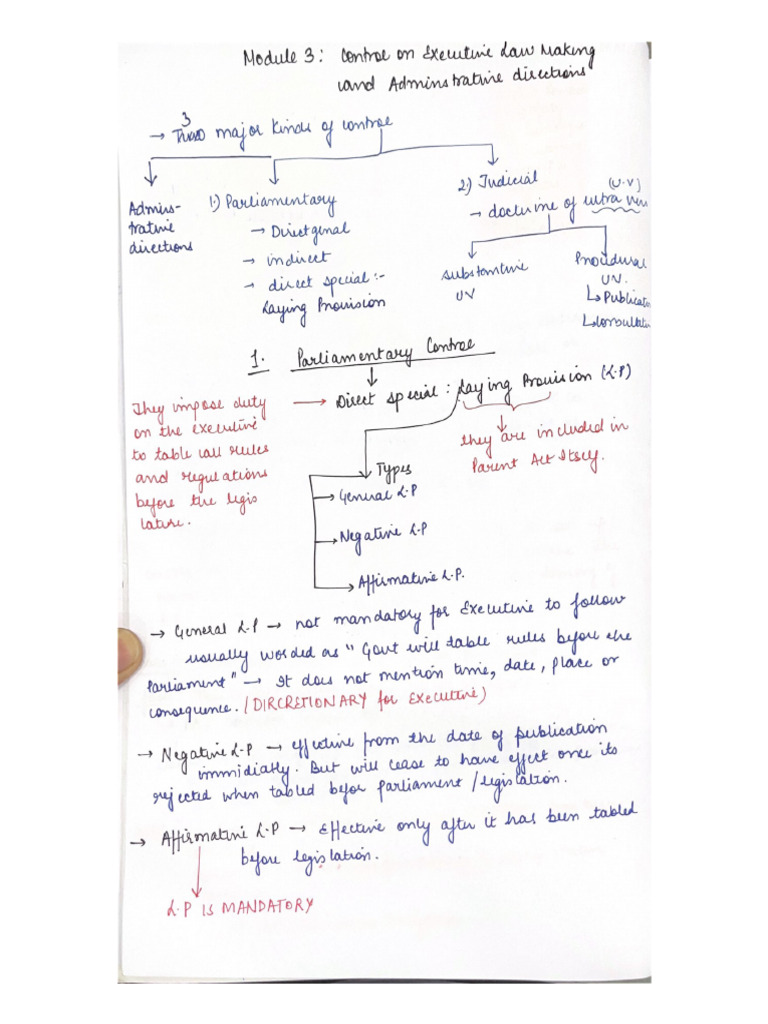 Module 3: Control on Executive Law Making
and Adminstrative directions
3
→ major Kinds of control
Adminis-
trative
directions
1.) Parliamentary
→ Direct genal
→ indirect
→ direct special :-
Laying Provision
2.) Judicial
(U.V)
→ doctrine of ultra vires
Substantive
UV
Procedural
UV.
↳ Publicatn
↳ Consultatn
1. Parliamentary Control
They impose duty
on the executive
to table all rules
and regulations
before the legis
lature.
→ Direct special : Laying Provision (L.P)
they are included in
Parent Act Itself.
Types
→ General L.P
→ Negative L.P
→ Affirmative L.P.
→ General L.P → not mandatory for Executive to follow
usually worded as "Govt will table rules before the
Parliament" → It does not mention time, date, place or
consequence. / DIRCRETIONARY for EXECUTIVE)
→ Negative L.P → effective from the date of publication
immidiatly. But will cease to have effect once its
rejected when tabled befor parliament / legislation.
→ Affirmative L.P → Effective only after it has been tabled
before legislation.
L.P IS MANDATORY